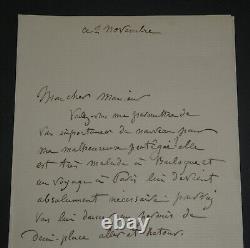 ce 2 novembre
Mon cher Monsieur
Voulez-vous me permettre de
vous importuner de nouveau pour
ma malheureuse protégée elle
est très malade à Boulogne et
un voyage à Paris lui devient
absolument nécessaire
vous lui donner
Demi-place aller et retour.